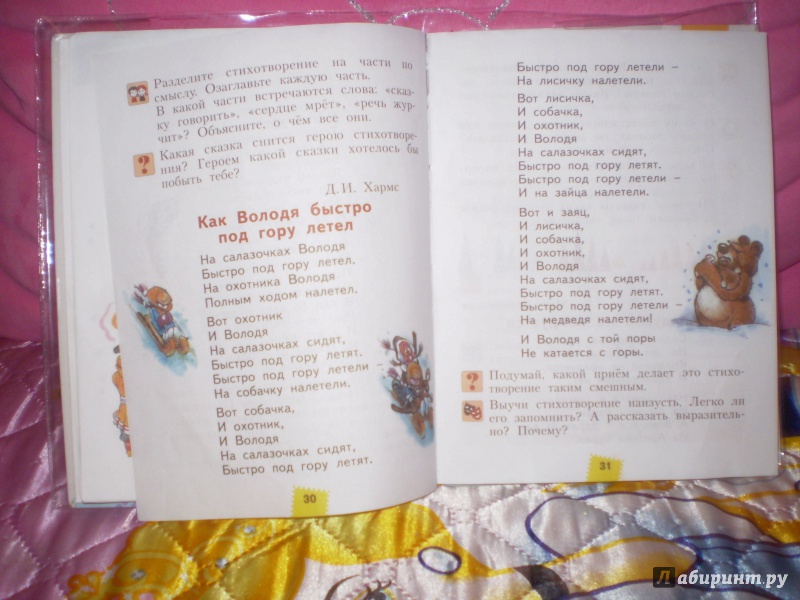 Разделите стихотворение на части по
смыслу. Озаглавьте каждую часть.
В какой части встречаются слова: «сказ-
ку говорить», «сердце мрёт», «речь жур-
чит»? Объясните, о чём все они.
Какая сказка снится герою стихотворе-
ния? Героем какой сказки хотелось бы
побыть тебе?
Д.И. Хармс
Как Володя быстро
под гору летел
На салазочках Володя
Быстро под гору летел.
На охотника Володя
Полным ходом налетел.
Вот охотник
И Володя
На салазочках сидят,
Быстро под гору летят.
Быстро под гору летели –
На собачку налетели.
Вот собачка,
И охотник,
И Володя
На салазочках сидят,
Быстро под гору летят.
30
Быстро под гору летели –
На лисичку налетели.
Вот лисичка,
И собачка,
И охотник,
И Володя
На салазочках сидят,
Быстро под гору летят.
Быстро под гору летели –
И на зайца налетели.
Вот и заяц,
И лисичка,
И собачка,
И охотник,
И Володя
На салазочках сидят,
Быстро под гору летят.
Быстро под гору летели –
На медведя налетели!
И Володя с той поры
Не катается с горы.
Подумай, какой приём делает это стихо-
творение таким смешным.
Выучи стихотворение наизусть. Легко ли
его запомнить? А рассказать выразитель-
но? Почему?
31
Лабиринт.ру